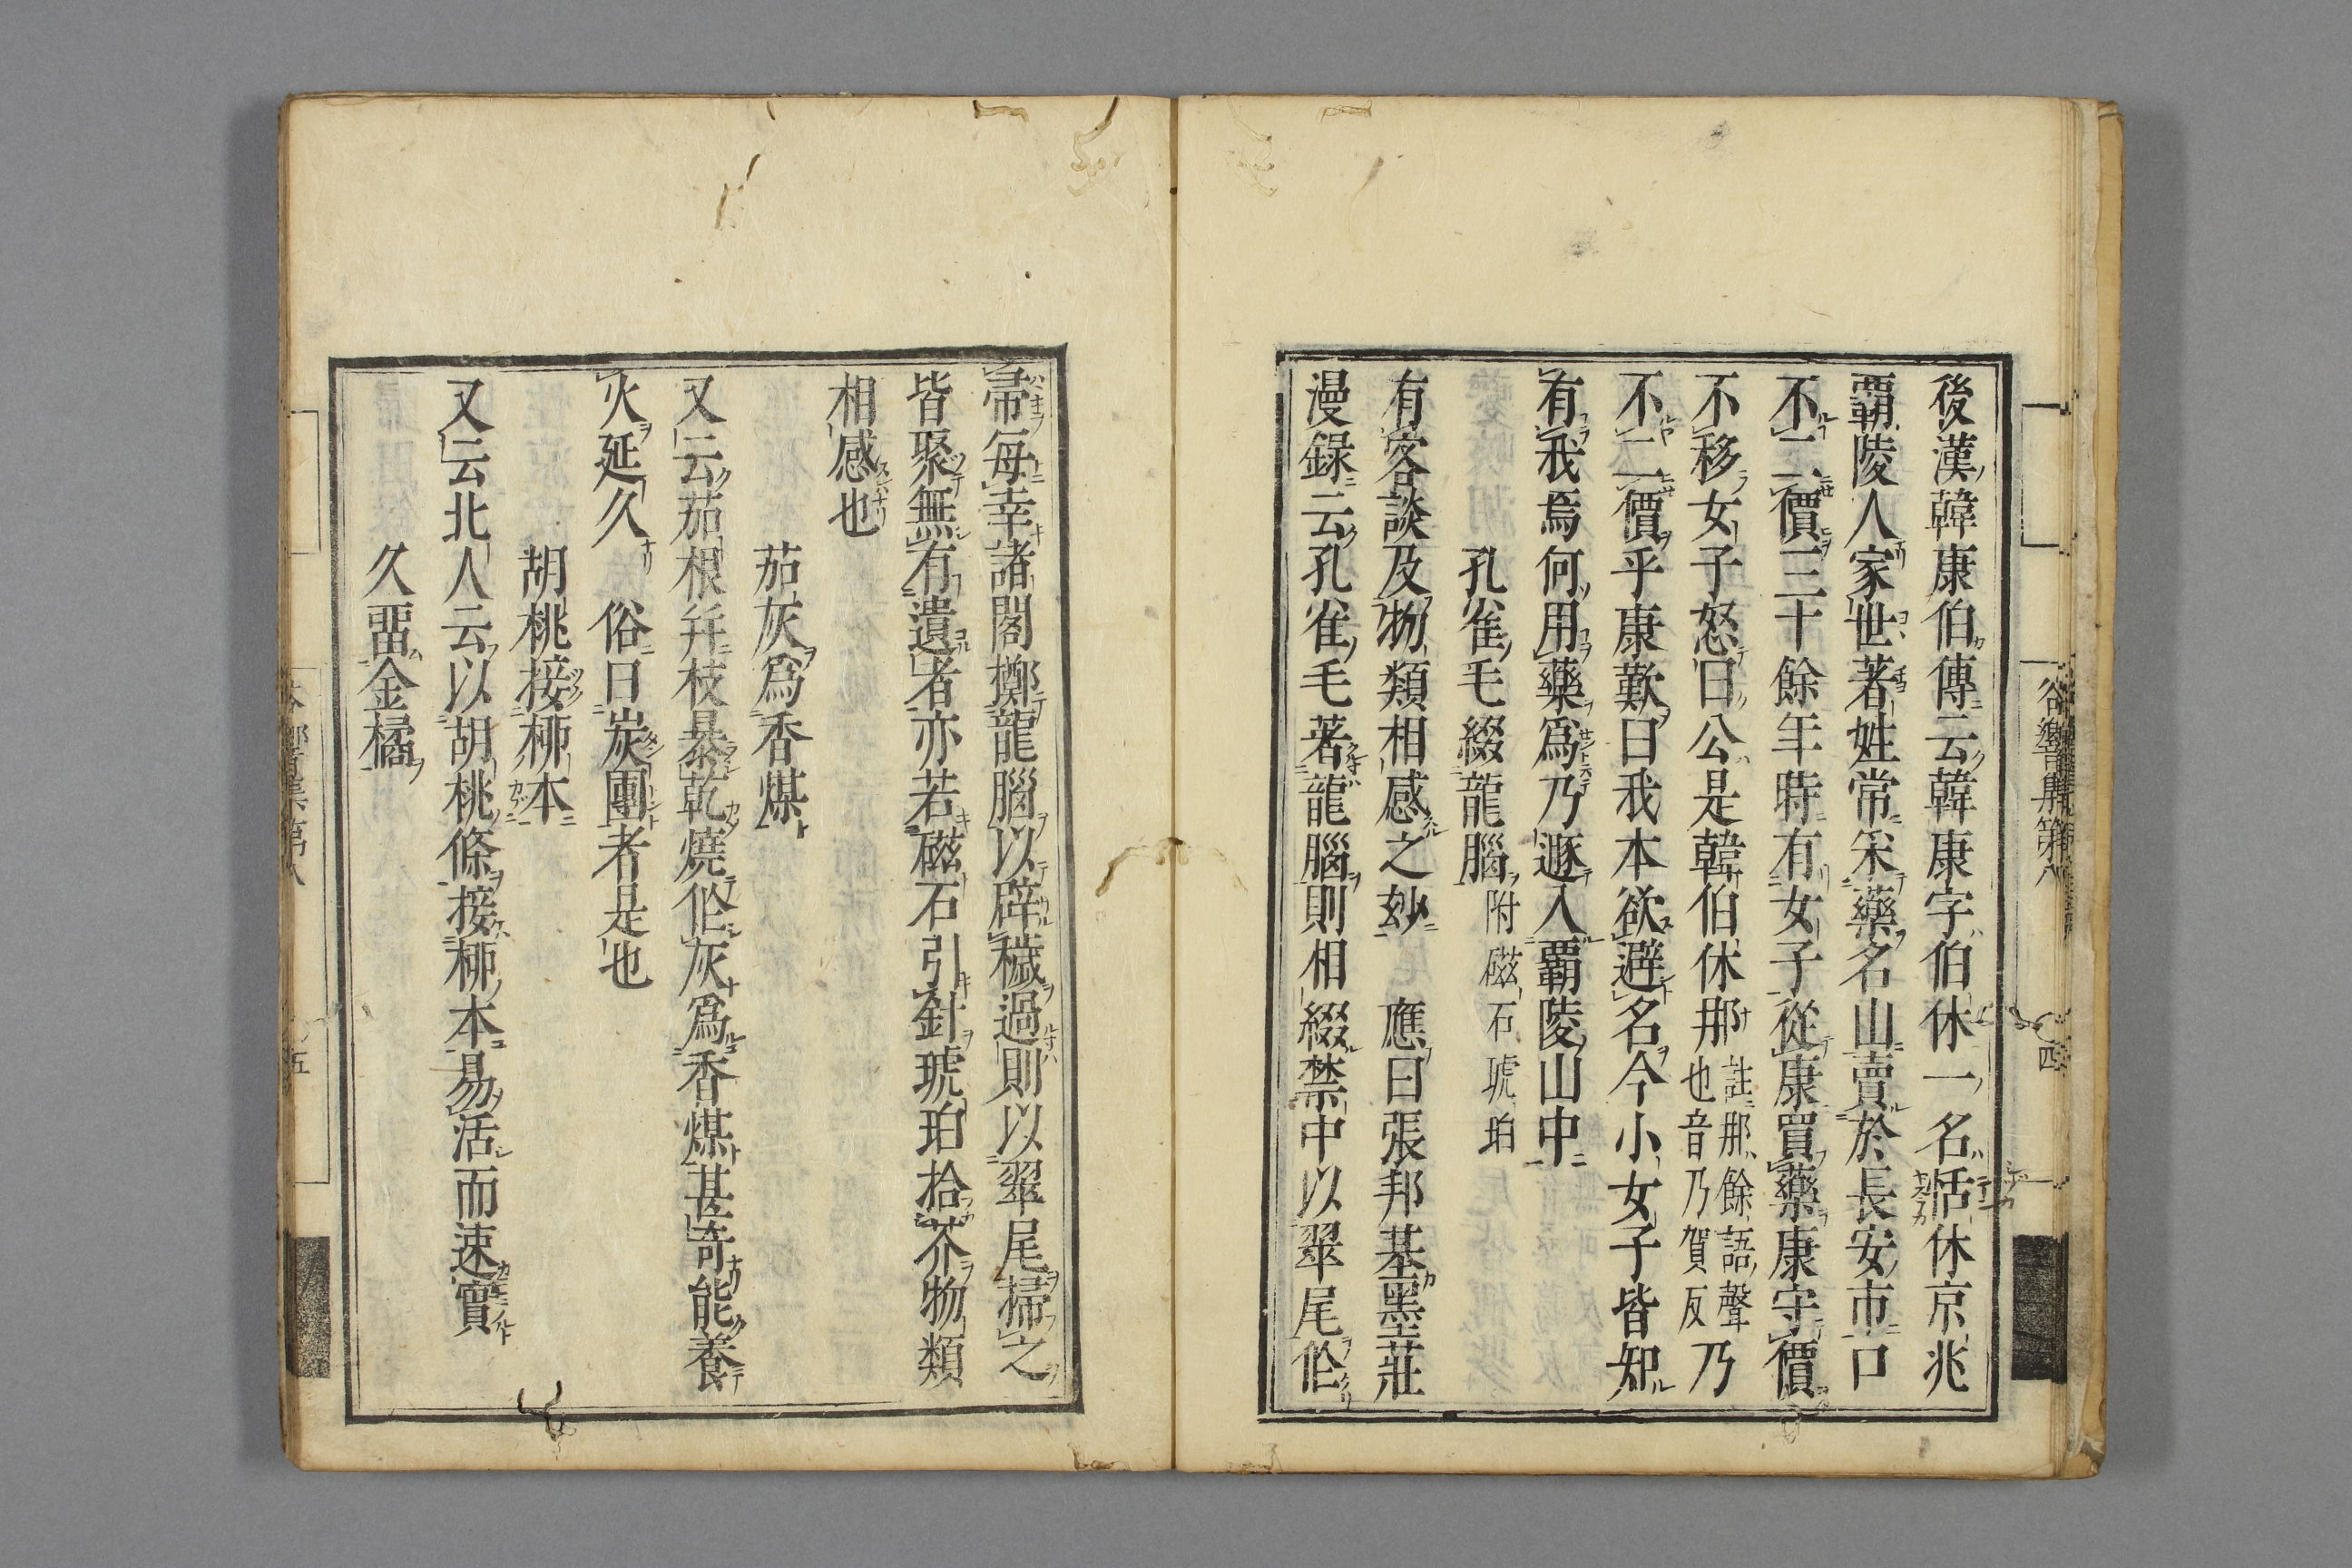 後漢韓康伯傳云韓康字伯休一名恬休京兆
覇陵人家世著姓常宋藥名山賣於長安市口
不二價三十餘年時有女子從康買藥康守價
不移女子怒曰公是韓伯休那註那餘語聲也音乃賀反乃
不二價乎康歎曰我本欲避名今小女子皆知
有我焉何用藥爲乃遯入覇陵山中
孔雀毛綴龍腦附磁石琥珀
有客談及物類相感之妙 應曰張邦基墨莊
漫録云孔雀毛著龍腦則相綴禁中以翠尾作
帚每幸諸閣擲龍腦以辟穢過則以翠尾掃之
皆聚無有遺者亦若磁石引針琥珀拾芥物類
相感也
茄灰爲香煤
又云茄根幷枝暴乾燒作灰爲香煤甚奇能養
火延久 俗曰炭團者是也
胡桃接柳本
又云北人云以胡桃條接柳本易活而速實
久畱金橘